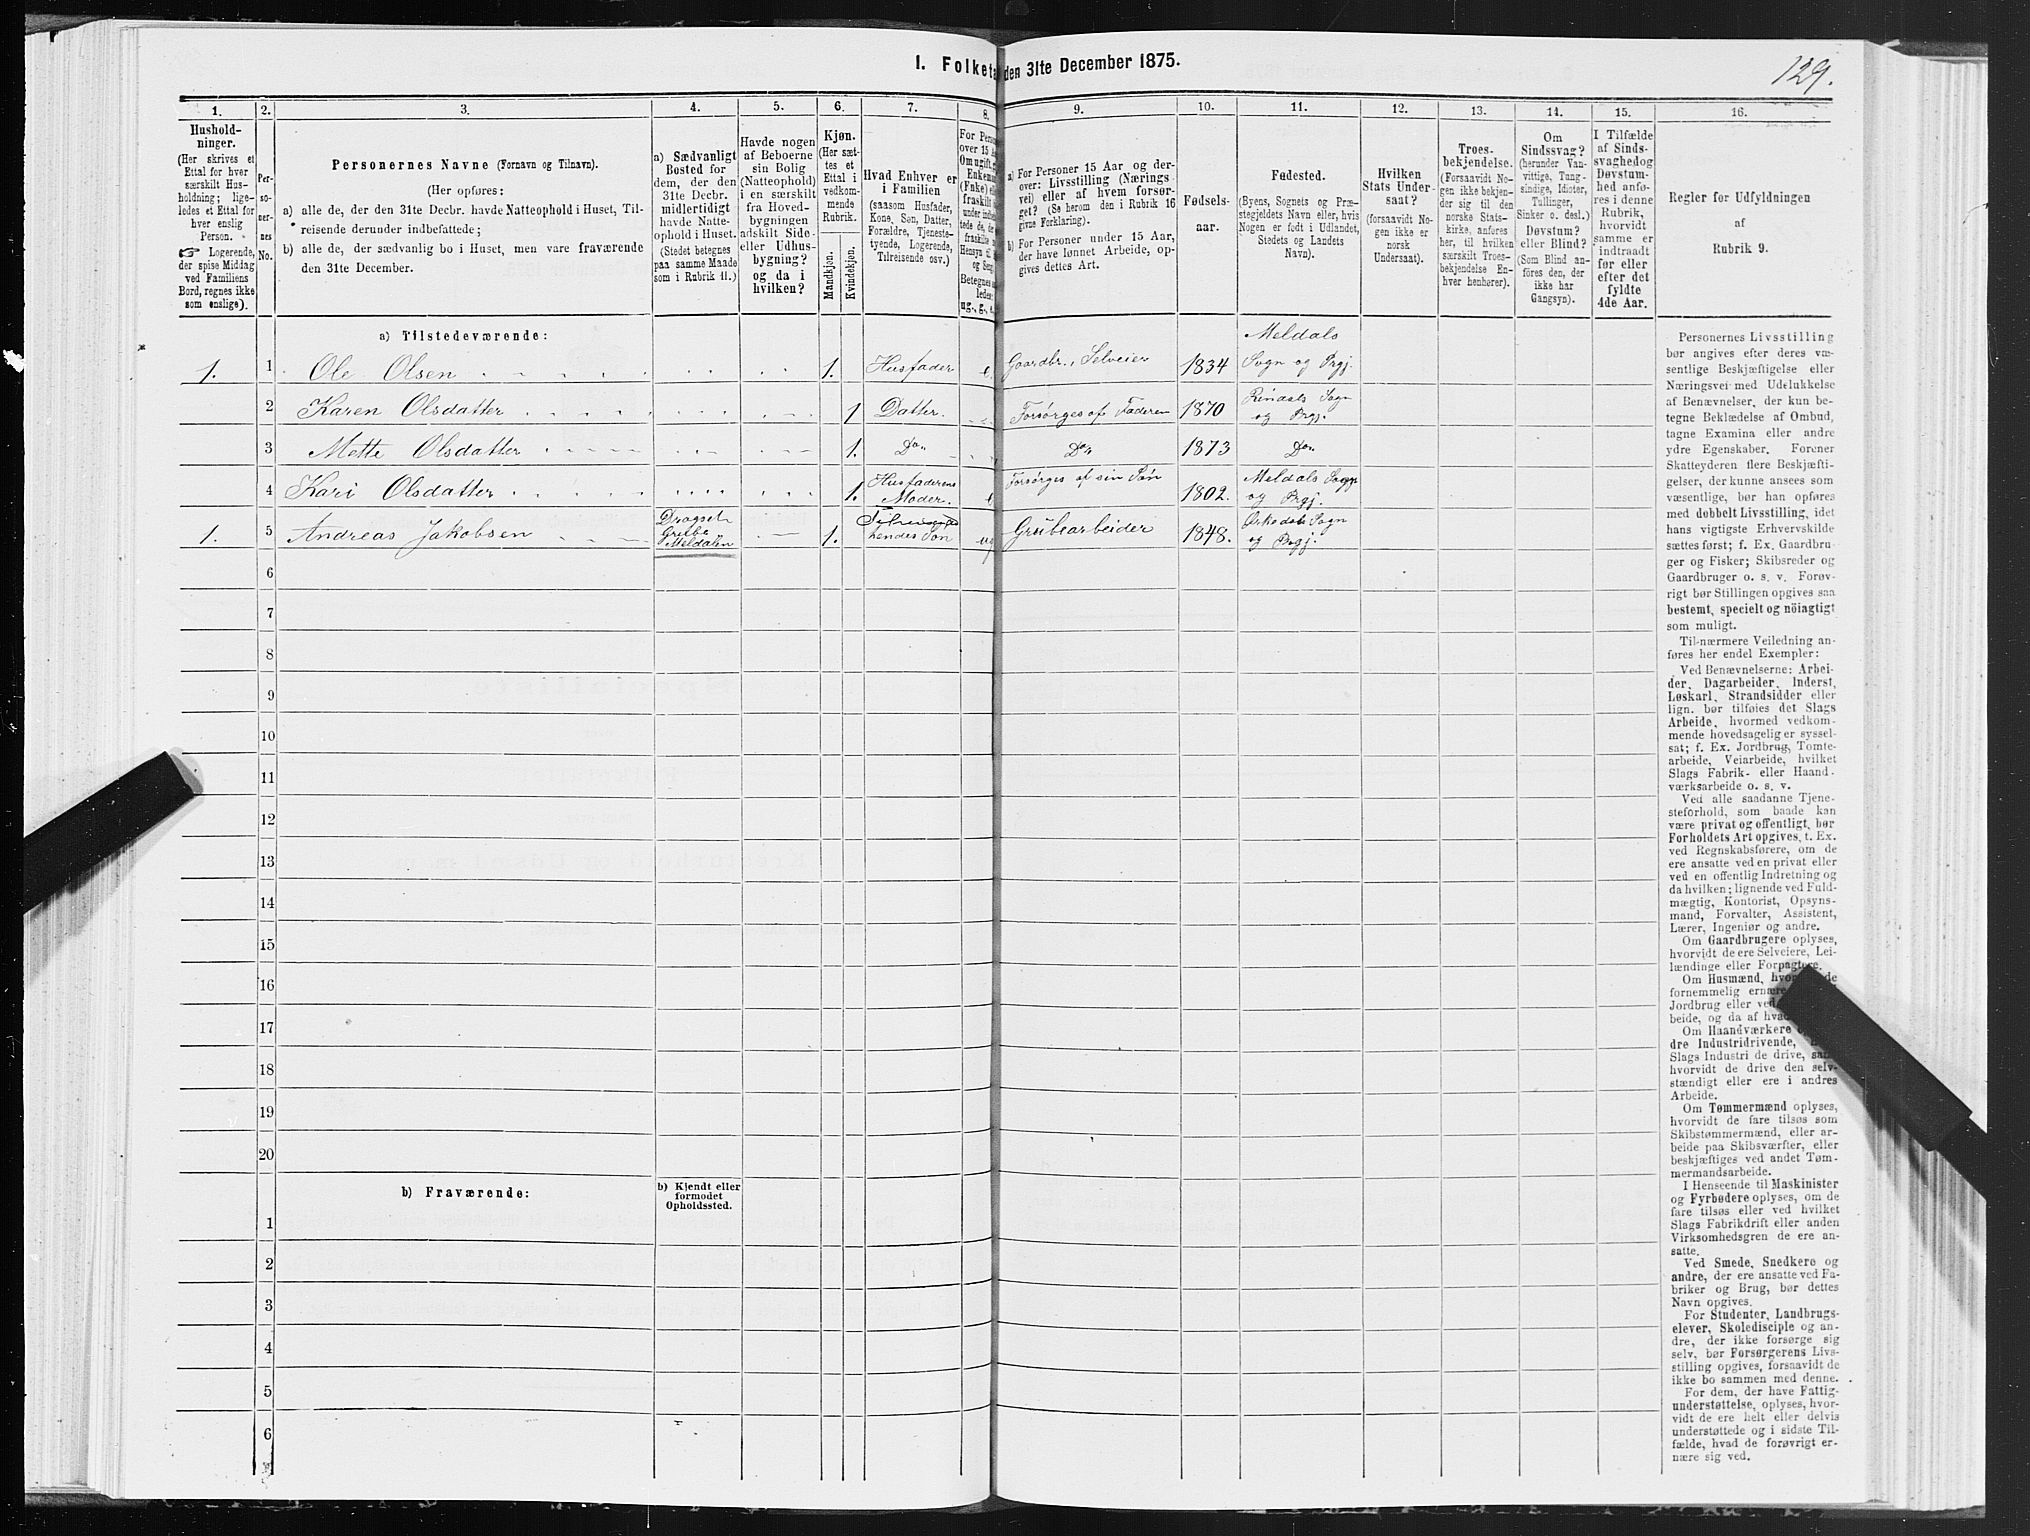 I. Folketæ den 31te December 1875.
129.
1.
2.
3.
4.
5.
6.
7.
8.
9.
10.
11.
12.
13.
14.
15.
16.
Hushold-
ninger.
(Her skrives et
Ettal for hver
særskilt Hus-
holdning; lige-
ledes et Ettal for
hver enslig
Person.
☞ Logerende,
der spise Middag
ved Familiens
Bord, regnes ikke
som enslige).
Per-
so-
ner-
nes
No.
Personernes Navne (Fornavn og Tilnavn).
(Her opføres:
a) alle de, der den 31te Decbr. havde Natteophold i Huset, Til-
reisende derunder indbefattede;
b) alle de, der sædvanlig bo i Huset, men vare fraværende
den 31te December.
a) Sædvanligt
Bosted for
dem, der den
31te Decbr.
midlertidigt
havde Natte-
ophold i Huset.
(Stedet betegnes
paa samme Maade
som i Rubrik 11.)
Havde nogen
af Beboerne
sin Bolig
(Natteophold)
i en særskilt
fra Hoved-
bygningen
adskilt Side-
eller Udhus-
bygning?
og da i
hvilken?
Kjøn.
(Her sæt-
tes et
Ettal i
vedkom-
mende
Rubrik.
Mandkjøn.
Kvindekjøn.
Hvad Enhver er
i Familien
(saasom Husfader,
Kone, Søn, Datter,
Forældre, Tjeneste-
tyende, Logerende,
Tilreisende osv.)
For Perso
over 15 A
Om ugift,
Enkema
(Fnke) el
fraskilt
under indb
tede de,
fraskilte
Hensyn
og Seng
Betegnes
ledes:
ug., g., e.
a) For Personer 15 Aar og der-
over: Livsstilling (Nærings-
vei) eller af hvem forsør-
get? (Se herom den i Rubrik 16
givne Forklaring).
b) For Personer under 15 Aar,
der have lønnet Arbeide, op-
gives dettes Art.
Fødsels-
aar.
Fødested.
(Byens, Sognets og Præ-
stegjeldets Navn eller, hvis
Nogen er født i Udlandet,
Stedets og Landets
Navn).
Hvilken
Stats Under-
saat?
(forsaavidt No-
gen ikke er
norsk
Undersaat).
Troes-
bekjendelse.
(Forsaavidt No-
gen ikke bekjen-
der sig til den
norske Stats-
kirke, anføres
her, til hvilken
særskilt Troes-
bekjendelse En-
hver henhører).
Om
Sindssvag?
(herunder Van-
vittige, Tung-
sindige, Idioter,
Tullinger,
Sinker o. desl.)
Døvstum?
eller Blind?
(Som Blind an-
føres den, der
ikke har
Gangsyn).
I Tilfælde
af Sinds-
svaghed og
Døvstum-
hed anfø-
res i denne
Rubrik,
hvorvidt
samme er
indtraadt
før eller
efter det
fyldte
4de Aar.
Regler for Udfyldningen
af
Rubrik 9.
a) Tilstedeværende:
1. 1 Ole Olsen 1. Husfader e. Gaardbr., Selveier 1834 Meldals
Sogn og Prgj.
2 Karen Olsdatter 1 Datter. Forsørges af Faderen 1870 Rindals Sogn
og Prgj.
3 Mette Olsdatter 1. Do Do 1873 Do
4 Kari Olsdatter 1. Husfaderens
Moder. e Forsørges af sin Søn 1802. Meldals Sogn
og Prgj.
1. 5 Andreas Jakobsen Dragset
Grube
Meldalen 1. hendes Søn ug Grubearbeider 1848. Orkedals Sogn
og Prgj.
6
7
8
9
10
11
12
13
14
15
16
17
18
19
20
b) Fraværende:
b) Kjendt eller
formodet
Opholdssted.
1
2
3
4
5
6
Personernes Livsstilling
bør angives efter deres væ-
sentlige Beskjæftigelse eller
Næringsvei med Udelukkelse
af Benævnelser, der kun be-
tegne Beklædelse af Ombud,
tagne Examina eller andre
ydre Egenskaber. Forener
Skatteyderen flere Beskjæfti-
gelser, der kunne ansees som
væsentlige, bør han opføres
med dobbelt Livsstilling, idet
hans vigtigste Erhvervskilde
sættes først; f. Ex. Gaardbru-
ger og Fisker; Skibsreder og
Gaardbruger o. s. v. Forøv-
rigt bør Stillingen opgives saa
bestemt, specielt og nöiagtigt
som muligt.
Til nærmere Veiledning an-
føres her endel Exempler:
Ved Benævnelserne: Arbei-
der, Dagarbeider, Inderst,
Løskarl, Strandsidder eller
lign. bør tilføies det Slags
Arbeide, hvormed vedkom-
mende hovedsagelig er syssel-
sat; f. Ex. Jordbrug, Tomte-
arbeide, Veiarbeide, hvilket
Slags Fabrik- eller Haand-
værksarbeide o. s. v.
Ved alle saadanne Tjene-
steforhold, som baade kan
være privat og offentligt, bør
Forholdets Art opgives, t. Ex.
ved Regnskabsførere, om de
ere ansatte ved en privat eller
ved en offentlig Indretning og
da hvilken; lignende ved Fuld-
mægtig, Kontorist, Opsyns-
mand, Forvalter, Assistent,
Lærer, Ingeniør og andre.
Om Gaardbrugere oplyses,
hvorvidt de ere Selveiere, Lei-
lændinge eller Forpagtere.
Om Husmænd, hvor de
fornemmelig ernære
Jordbrug eller ved
beide, og da af hvad
Om Haandværkere
dre Industridrivende,
Slags Industri de drive, samt
hvorvidt de drive den selv-
stændigt eller ere i andres
Arbeide.
Om Tømmermænd oplyses,
hvorvidt de fare tilsøs som
Skibstømmermænd, eller ar-
beide paa Skibsværfter, eller
beskjæftiges ved andet Tøm-
mermandsarbeide.
I Henseende til Maskinister
og Fyrbødere oplyses, om de
fare tilsøs eller ved hvilket
Slags Fabrikdrift eller anden
Virksomhedsgren de ere an-
satte.
Ved Smede, Snedkere og
andre, der ere ansatte ved Fa-
briker og Brug, bør dettes
Navn opgives.
For Studenter, Landbrugs-
elever, Skoledisciple og an-
dre, der ikke forsørge sig
selv, bør Forsørgerens Livs-
stilling opgives, forsaavidt de
ikke bo sammen med denne.
For dem, der have Fattig-
understøttelse, oplyses, hvor-
vidt de ere helt eller delvis
understøttede og i sidste Til-
fælde, hvad de forøvrigt er-
nære sig ved.